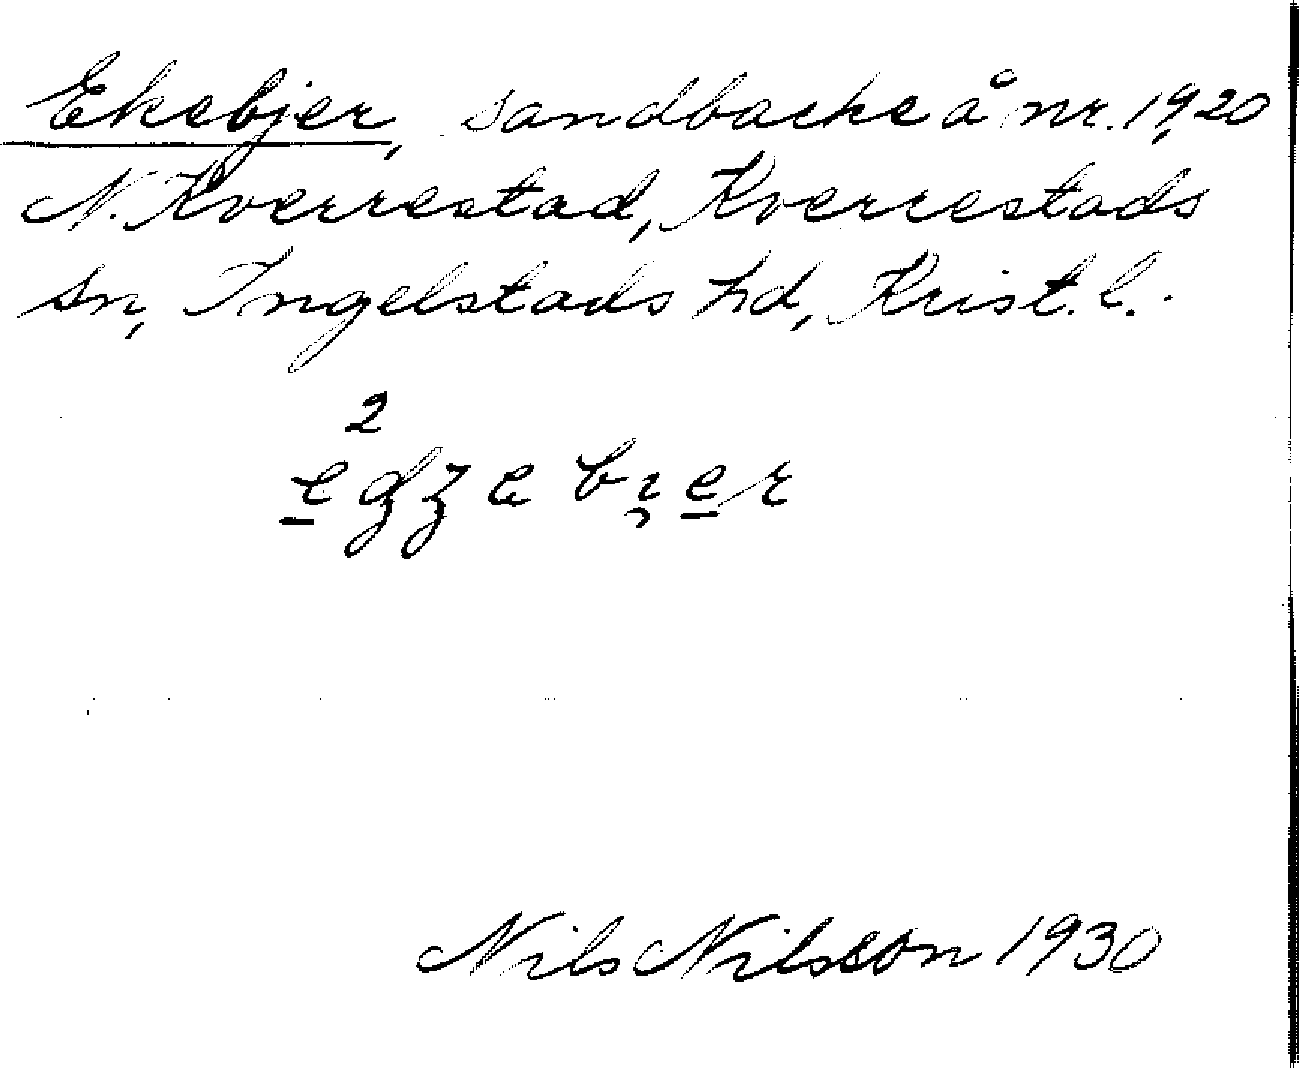 Ekebjer, sandbacke å nr. 19,20
N. Kverrestad, Kverrestads
sn, Ingelstads hd, Krist. l.
2
Nils Nilsson 1930